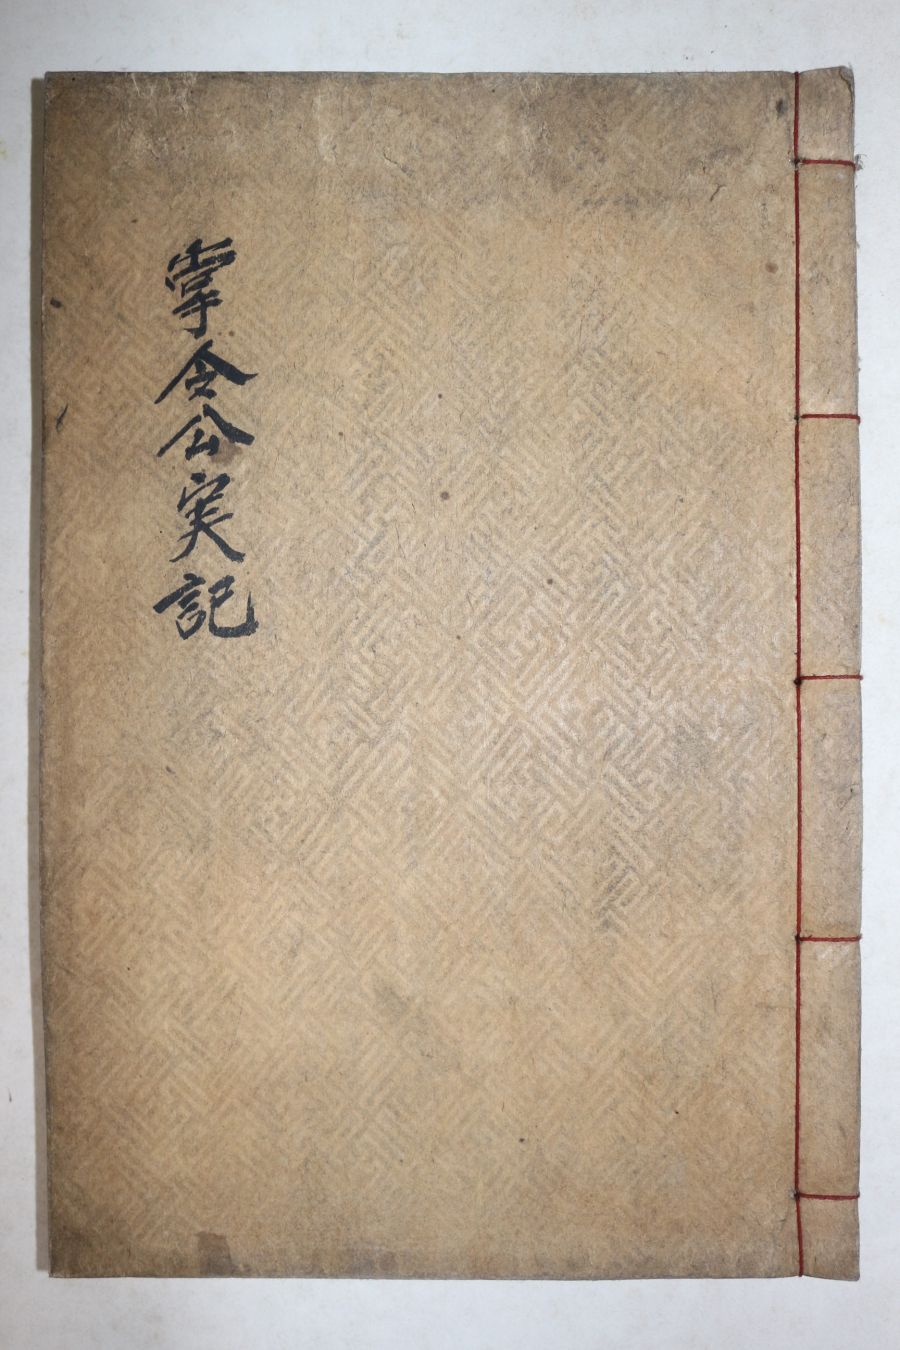 掌令公実記